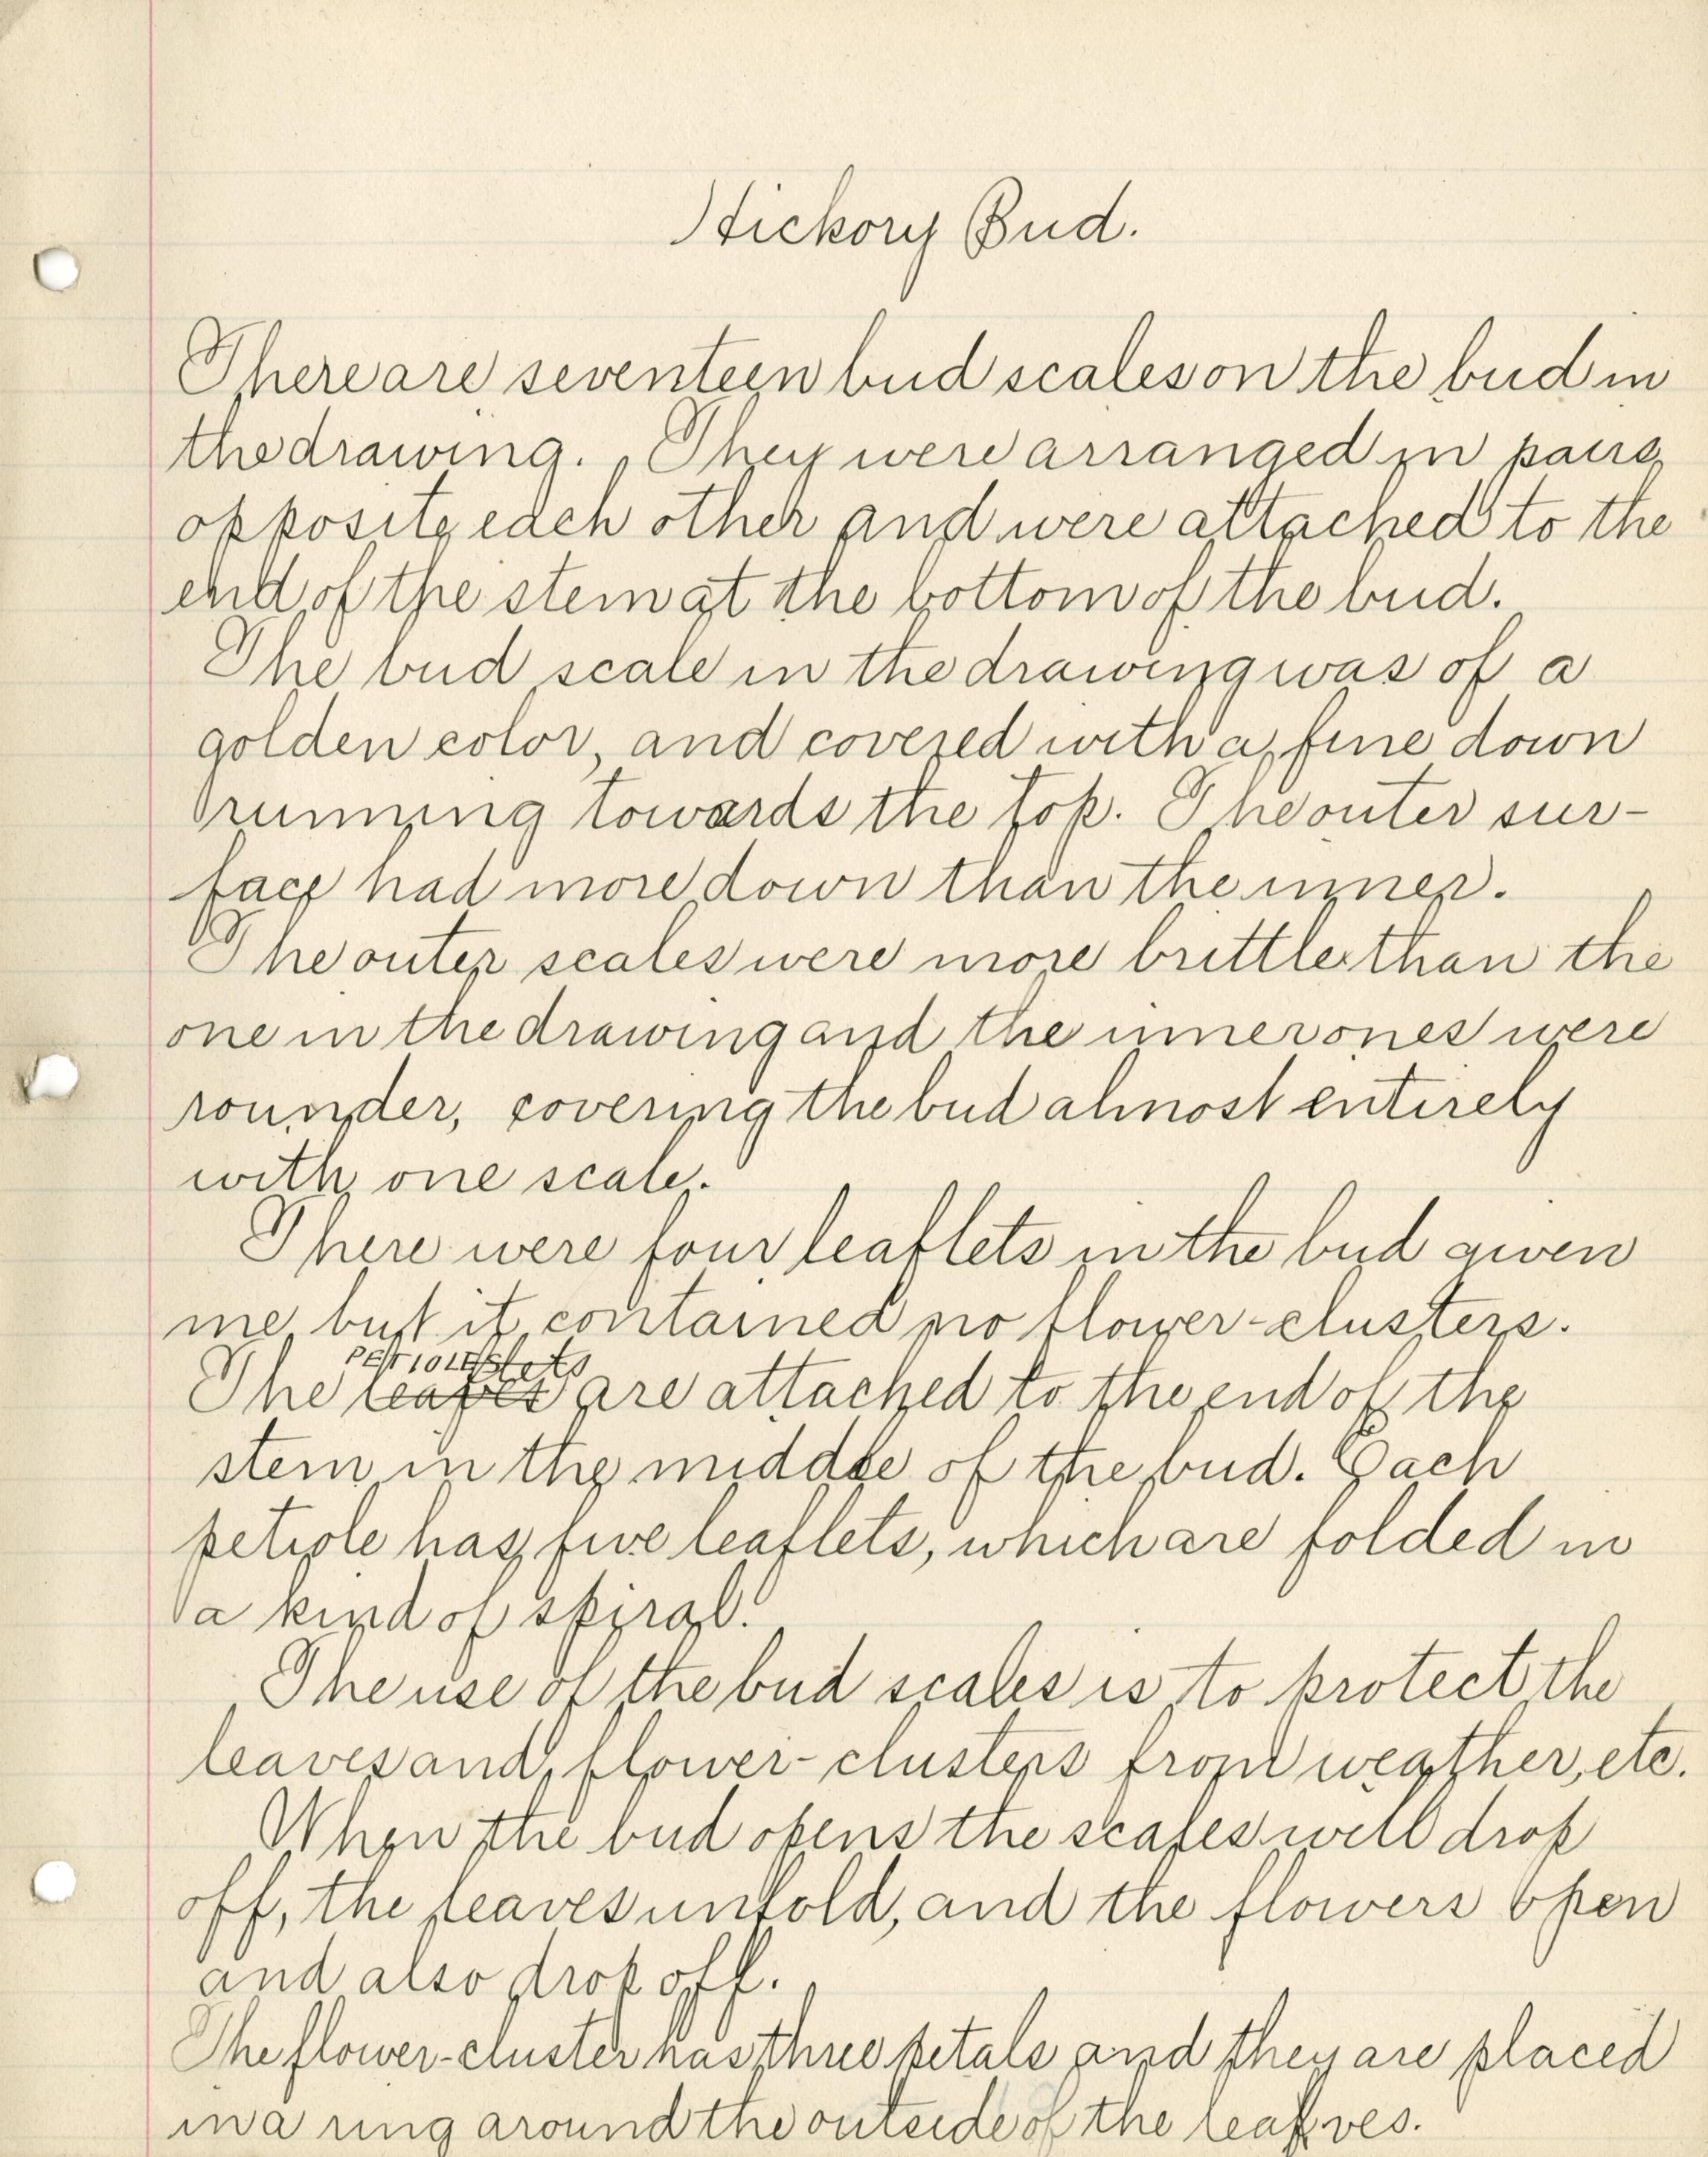 Hickory Bud.
There are seventeen bud scales on the bud in
the drawing. They were arranged in pairs
opposite each other and were attached to the
end of the stem at the bottom of the bud.
The bud scale in the drawing was of a
golden color, and covered with a fine down
running towards the top. The outer sur-
face had more down than the inner.
The outer scales were more brittle than the
one in the drawing and the inner ones were
rounder, covering the bud almost entirely
with one scale.
There were four leaflets in the bud given
me but it contained no flower-clusters.
PETIOLES
The leaves are attached to the end of the
stem in the middle of the bud. Each
petiole has five leaflets, which are folded in
a kind of spiral.
The use of the bud scales is to protect the
leaves and flower-clusters from weather, etc.
When the bud opens the scales will drop
off, the leaves unfold, and the flowers open
and also drop off.
The flower-cluster has three petals and they are placed
in a ring around the outside of the leaves.